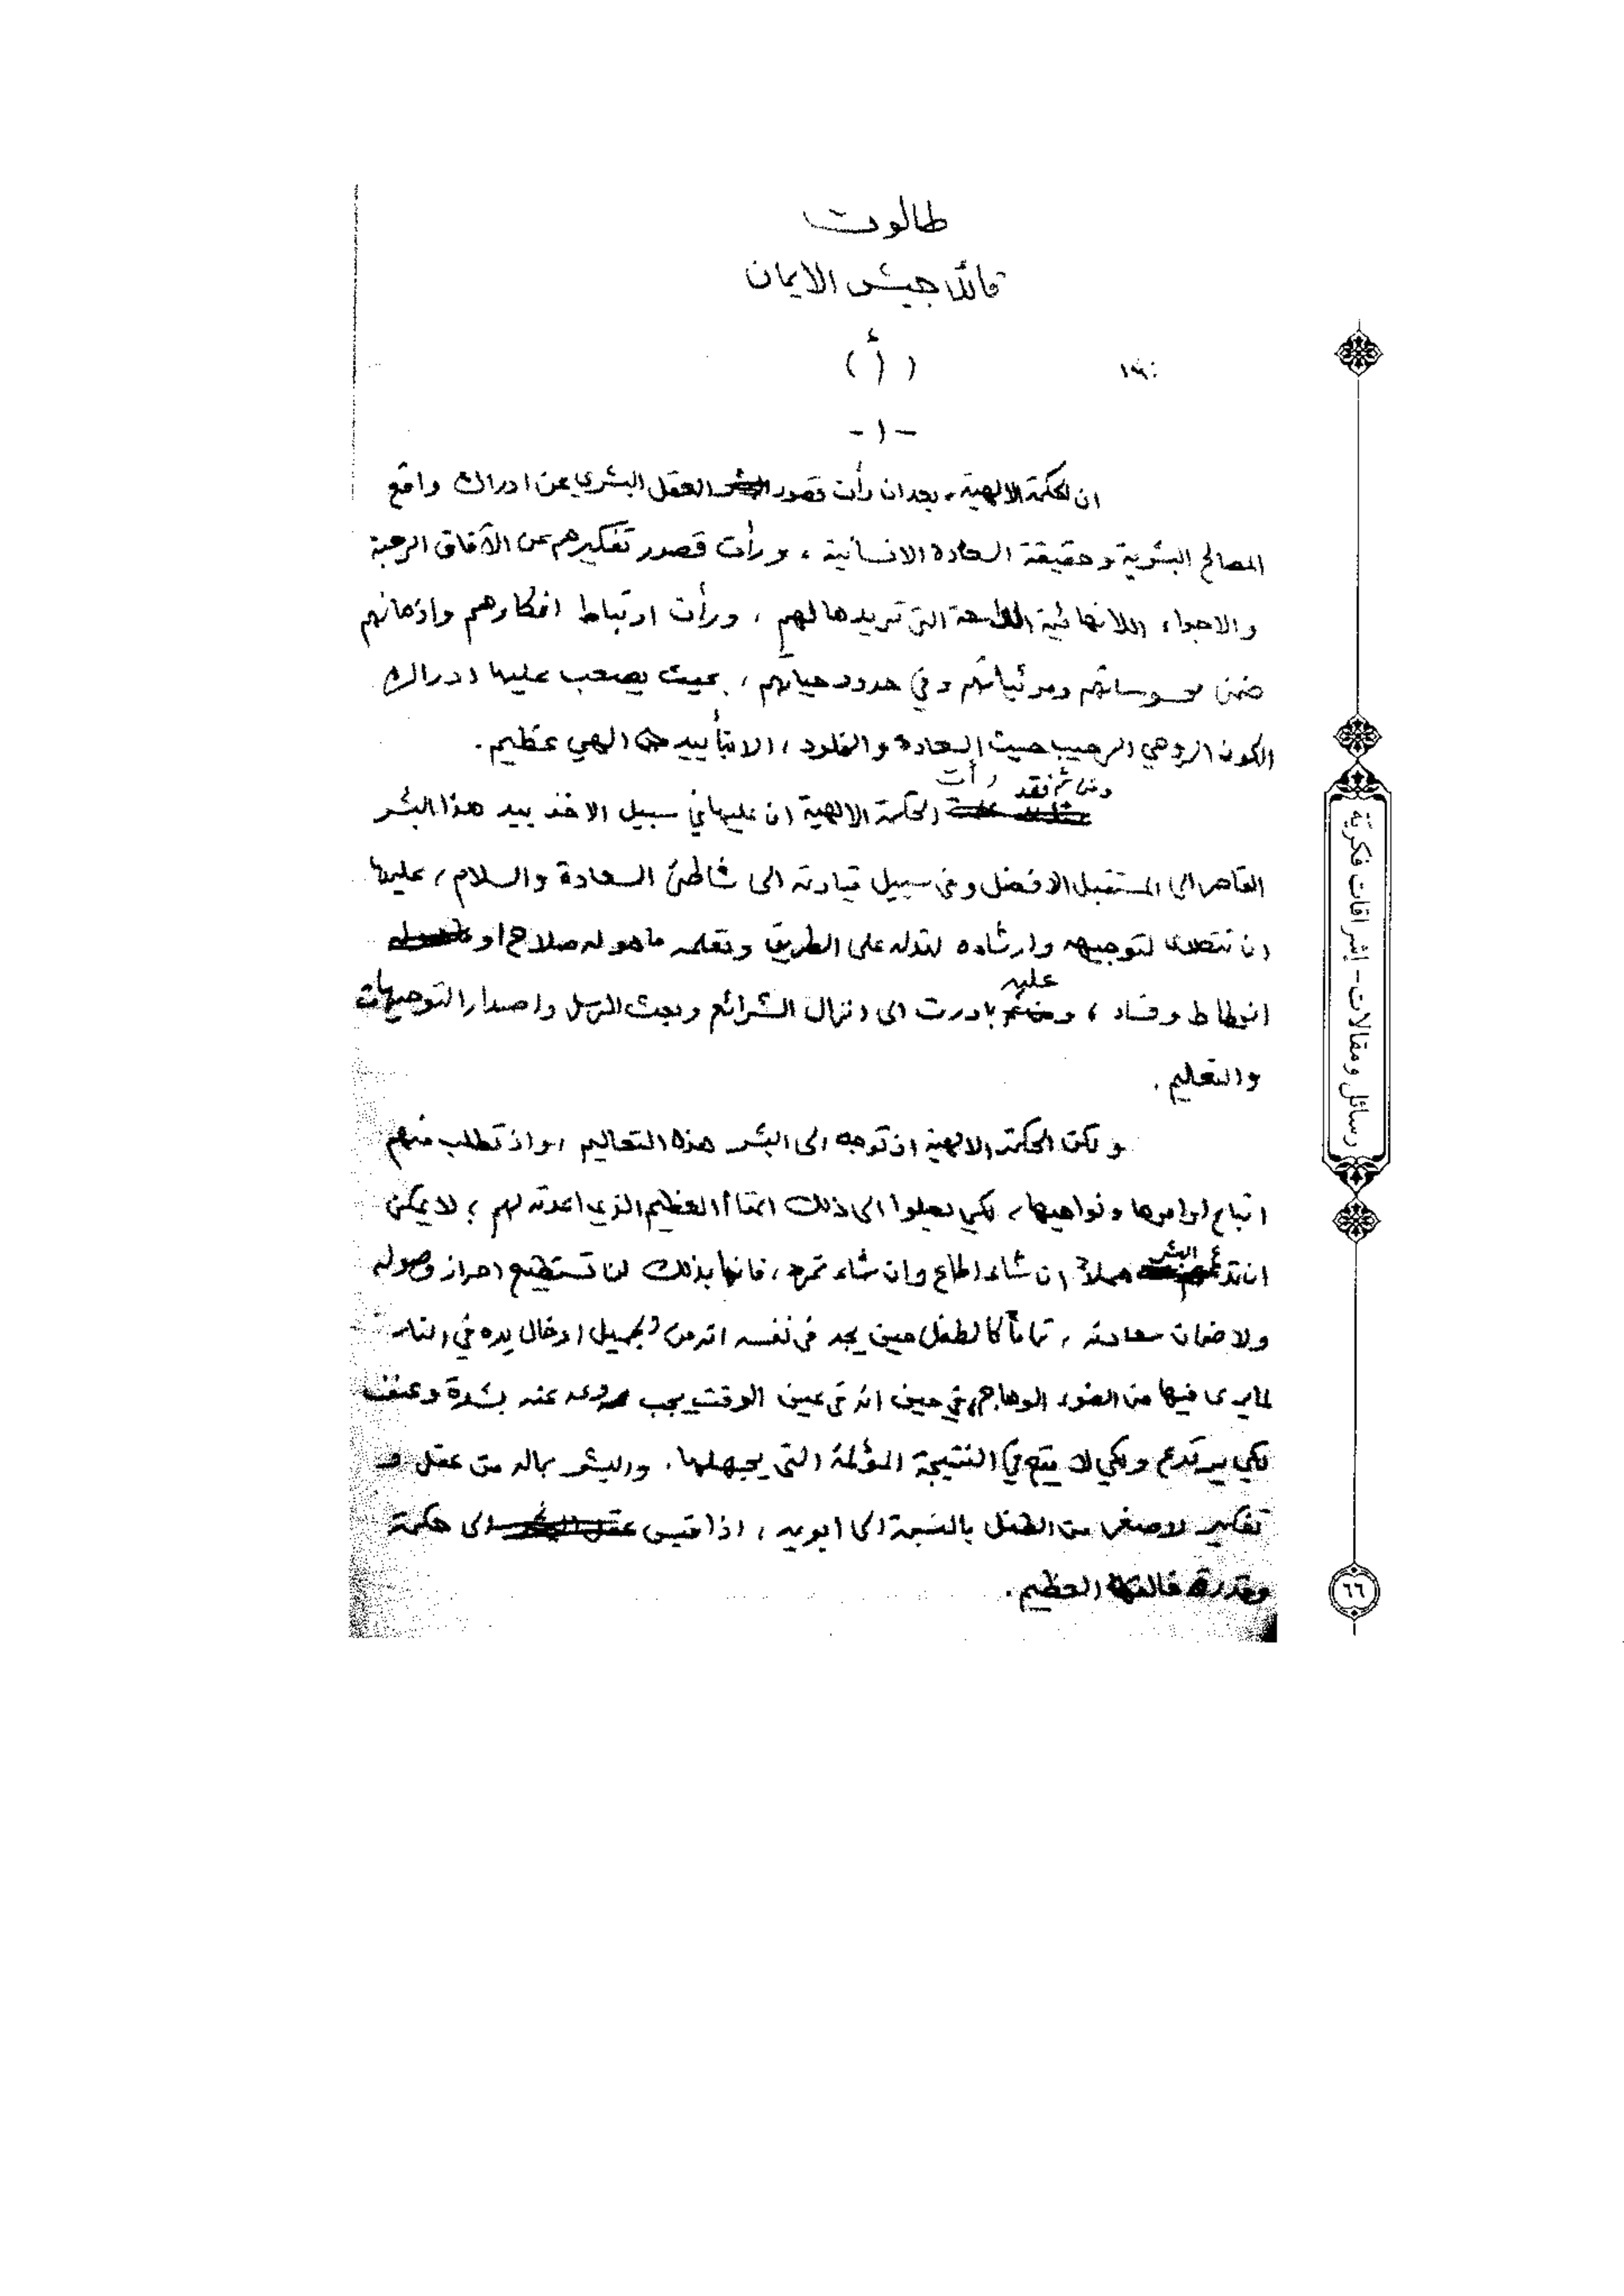 طالوت
قائد جيش الايمان
( أ )
- ١ -
ان الحكمة الالهية ، بعد ان رأت قصور العقل البشري عن ادراك واقع
المصالح البشرية وحقيقة السعادة الانسانية ، ورأت قصور تفكيرهم عن الآفاق الرحبة
والاجواء اللانهائية التي تريدها لهم ، ورأت ارتباط افكارهم واذهانهم
ضمن محسوساتهم ومرئياتهم وفي حدود حياتهم ، بحيث يصعب عليها ادراك
الكون الروحي الرحيب حيث السعادة والخلود ، الا بتأييد الهي عظيم .
ومن ثم فقد رأت الحكمة الالهية ان عليها في سبيل الاخذ بيد هذا البشر
القاصر الى المستقبل الافضل وفي سبيل قيادته الى شاطئ السعادة والسلام ، عليها
ان تتصدى لتوجيهه وارشاده لتدله على الطريق وتعلمه ما هو له صلاح او
انحطاط وفساد ، وعليه بادرت الى انزال الشرائع وبعث الرسل واصدار التوجيهات
والتعليم .
ولكن الحكمة الالهية اذ توجه الى البشر هذه التعاليم ، واذ تطلب منهم
اتباع اوامرها ونواهيها ، لكي يصلوا الى ذلك العظيم الذي اعدته لهم ؛ لا يمكن
ان تدع البشر هملاً ان شاء اطاع وان شاء تمرد ، فانها بذلك لن تستطيع احراز وصوله
ولا ضمان سعادته ، تماماً كالطفل حين يجد في نفسه انه من الجميل ادخال يده في النار
لما يرى فيها من الضوء الوهاج ، في حين انه في عين الوقت يجب ردعه عنه بشدة وعنف
لكي يرتدع ولكي لا يقع في النتيجة المؤلمة التي يجهلها . والبشر بماله من عقل و
تفكير لاصغر من الطفل بالنسبة الى ابويه ، اذا قيس الى حكمة
وقدرة خالقه العظيم .
رسائل ومقالات - إشراقات فكرية
٦٦